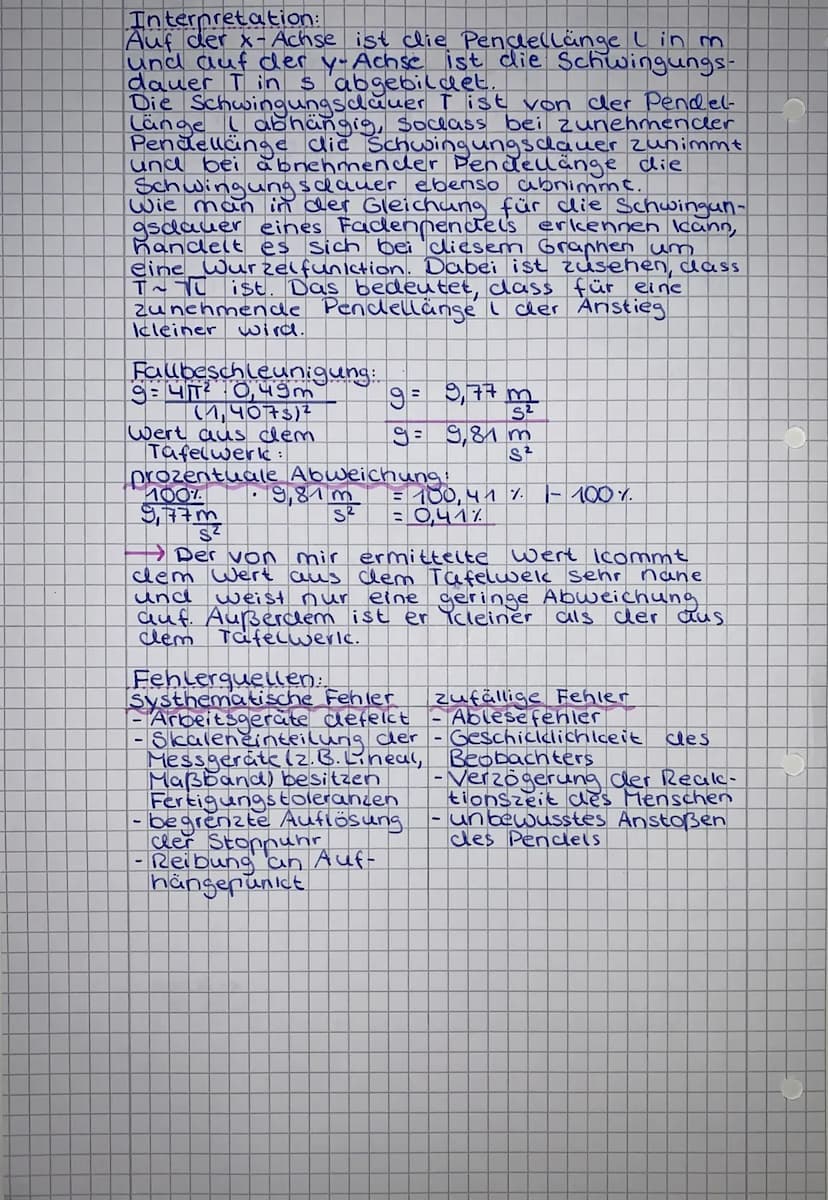 Interpretation:
Auf der x-Achse ist die Pendellänge l in m
und auf der y-Achse ist die Schwingungs-
dauer T in s abgebildet.
Die Schwingungsdauer T ist von der Pendel-
länge l abhängig, sodass bei zunehmender
Pendellänge die Schwingungsdauer zunimmt
und bei abnehmender Pendellänge die
Schwingungsdauer ebenso abnimmt.
Wie man in der Gleichung für die Schwingun-
gsdauer eines Fadenpendels erkennen kann,
handelt es sich bei diesem Graphen um
eine Wurzelfunktion. Dabei ist zusehen, dass
T~√l ist. Das bedeutet, dass für eine
zunehmende Pendellänge l der Anstieg
kleiner wird.
Fallbeschleunigung:
g= 4π² · 0,49m g= 9,77 m
(1,407s)² s²
Wert aus dem g= 9,81 m
Tafelwerk: s²
prozentuale Abweichung:
100% · 9,81 m = 100,41 % |- 100%
9,77m s² = 0,41%
s²
→ Der von mir ermittelte Wert kommt
dem Wert aus dem Tafelwek sehr nahe
und weist nur eine geringe Abweichung
auf. Außerdem ist er kleiner als der aus
dem Tafelwerk.
Fehlerquellen:
systhematische Fehler zufällige Fehler
- Arbeitsgeräte defekt - Ablesefehler
- Skaleneinteilung der - Geschicklichkeit des
Messgeräte (z.B. Lineal, Beobachters
Maßband) besitzen - Verzögerung der Reak-
Fertigungstoleranzen tionszeit des Menschen
- begrenzte Auflösung - unbewusstes Anstoßen
der Stoppuhr des Pendels
- Reibung an Auf-
hängepunkt